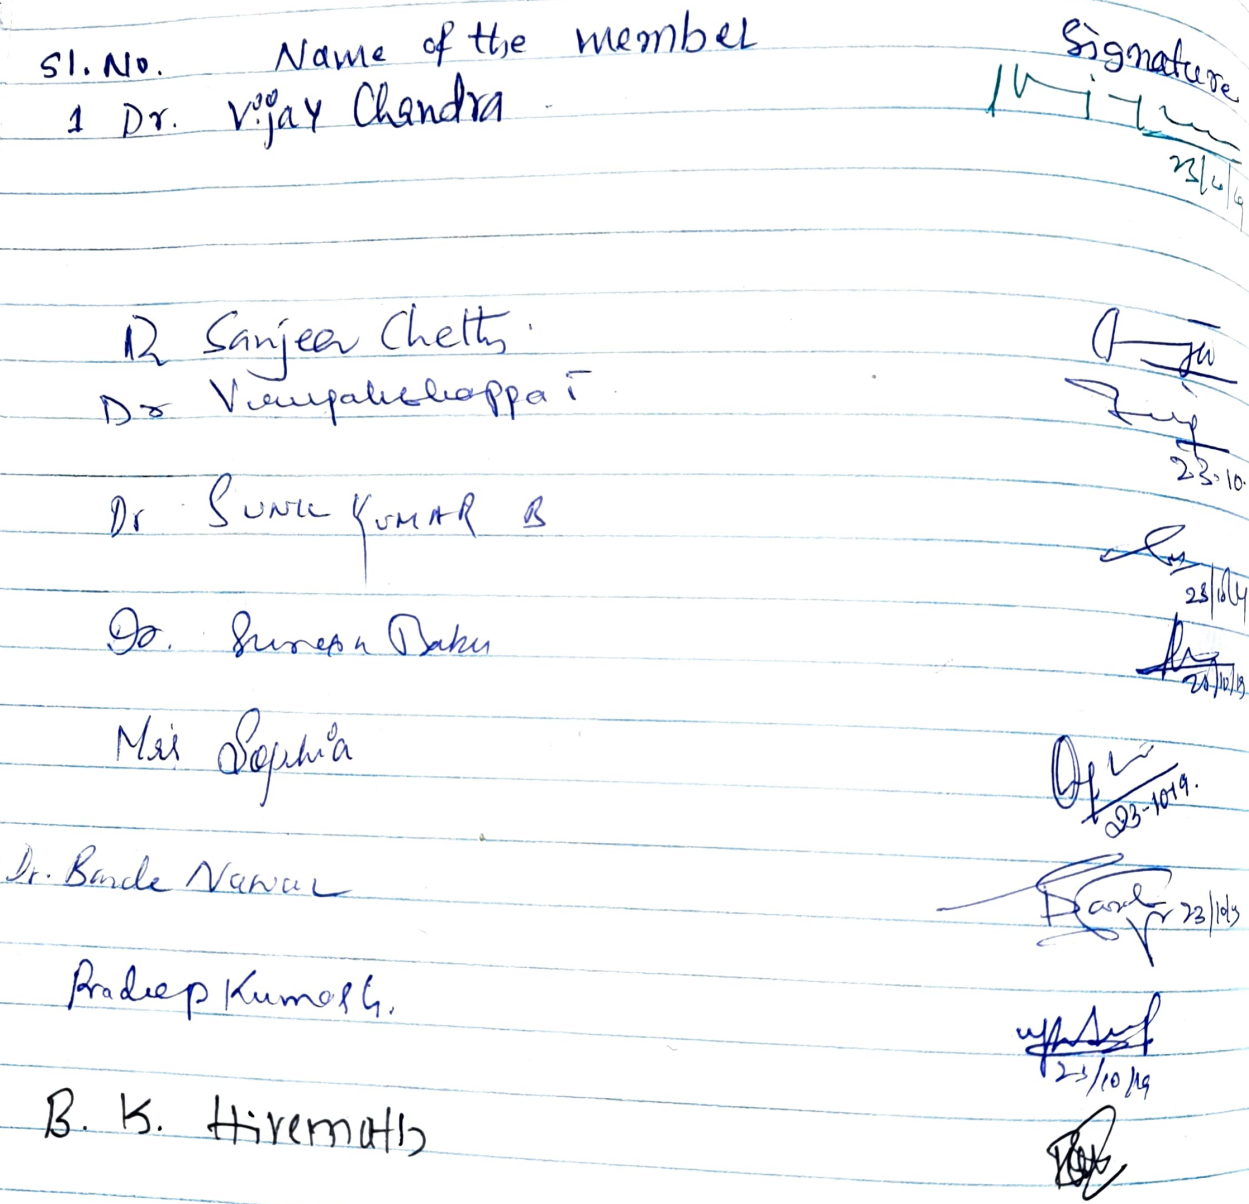 Sl. No. Name of the member Signature
1 Dr. Vijay Chandra
Dr Sanjeev Chetty.
Dr Virupakshappa T
23.10.
Dr SUNIL KUMAR B
23/10/19
Dr. Suresh Babu
23/10/19
Mrs Sophia
23-10-19.
Dr. Bande Nawaz
23/10/19
Pradeep Kumar G.
23/10/19
B. K. Hiremath